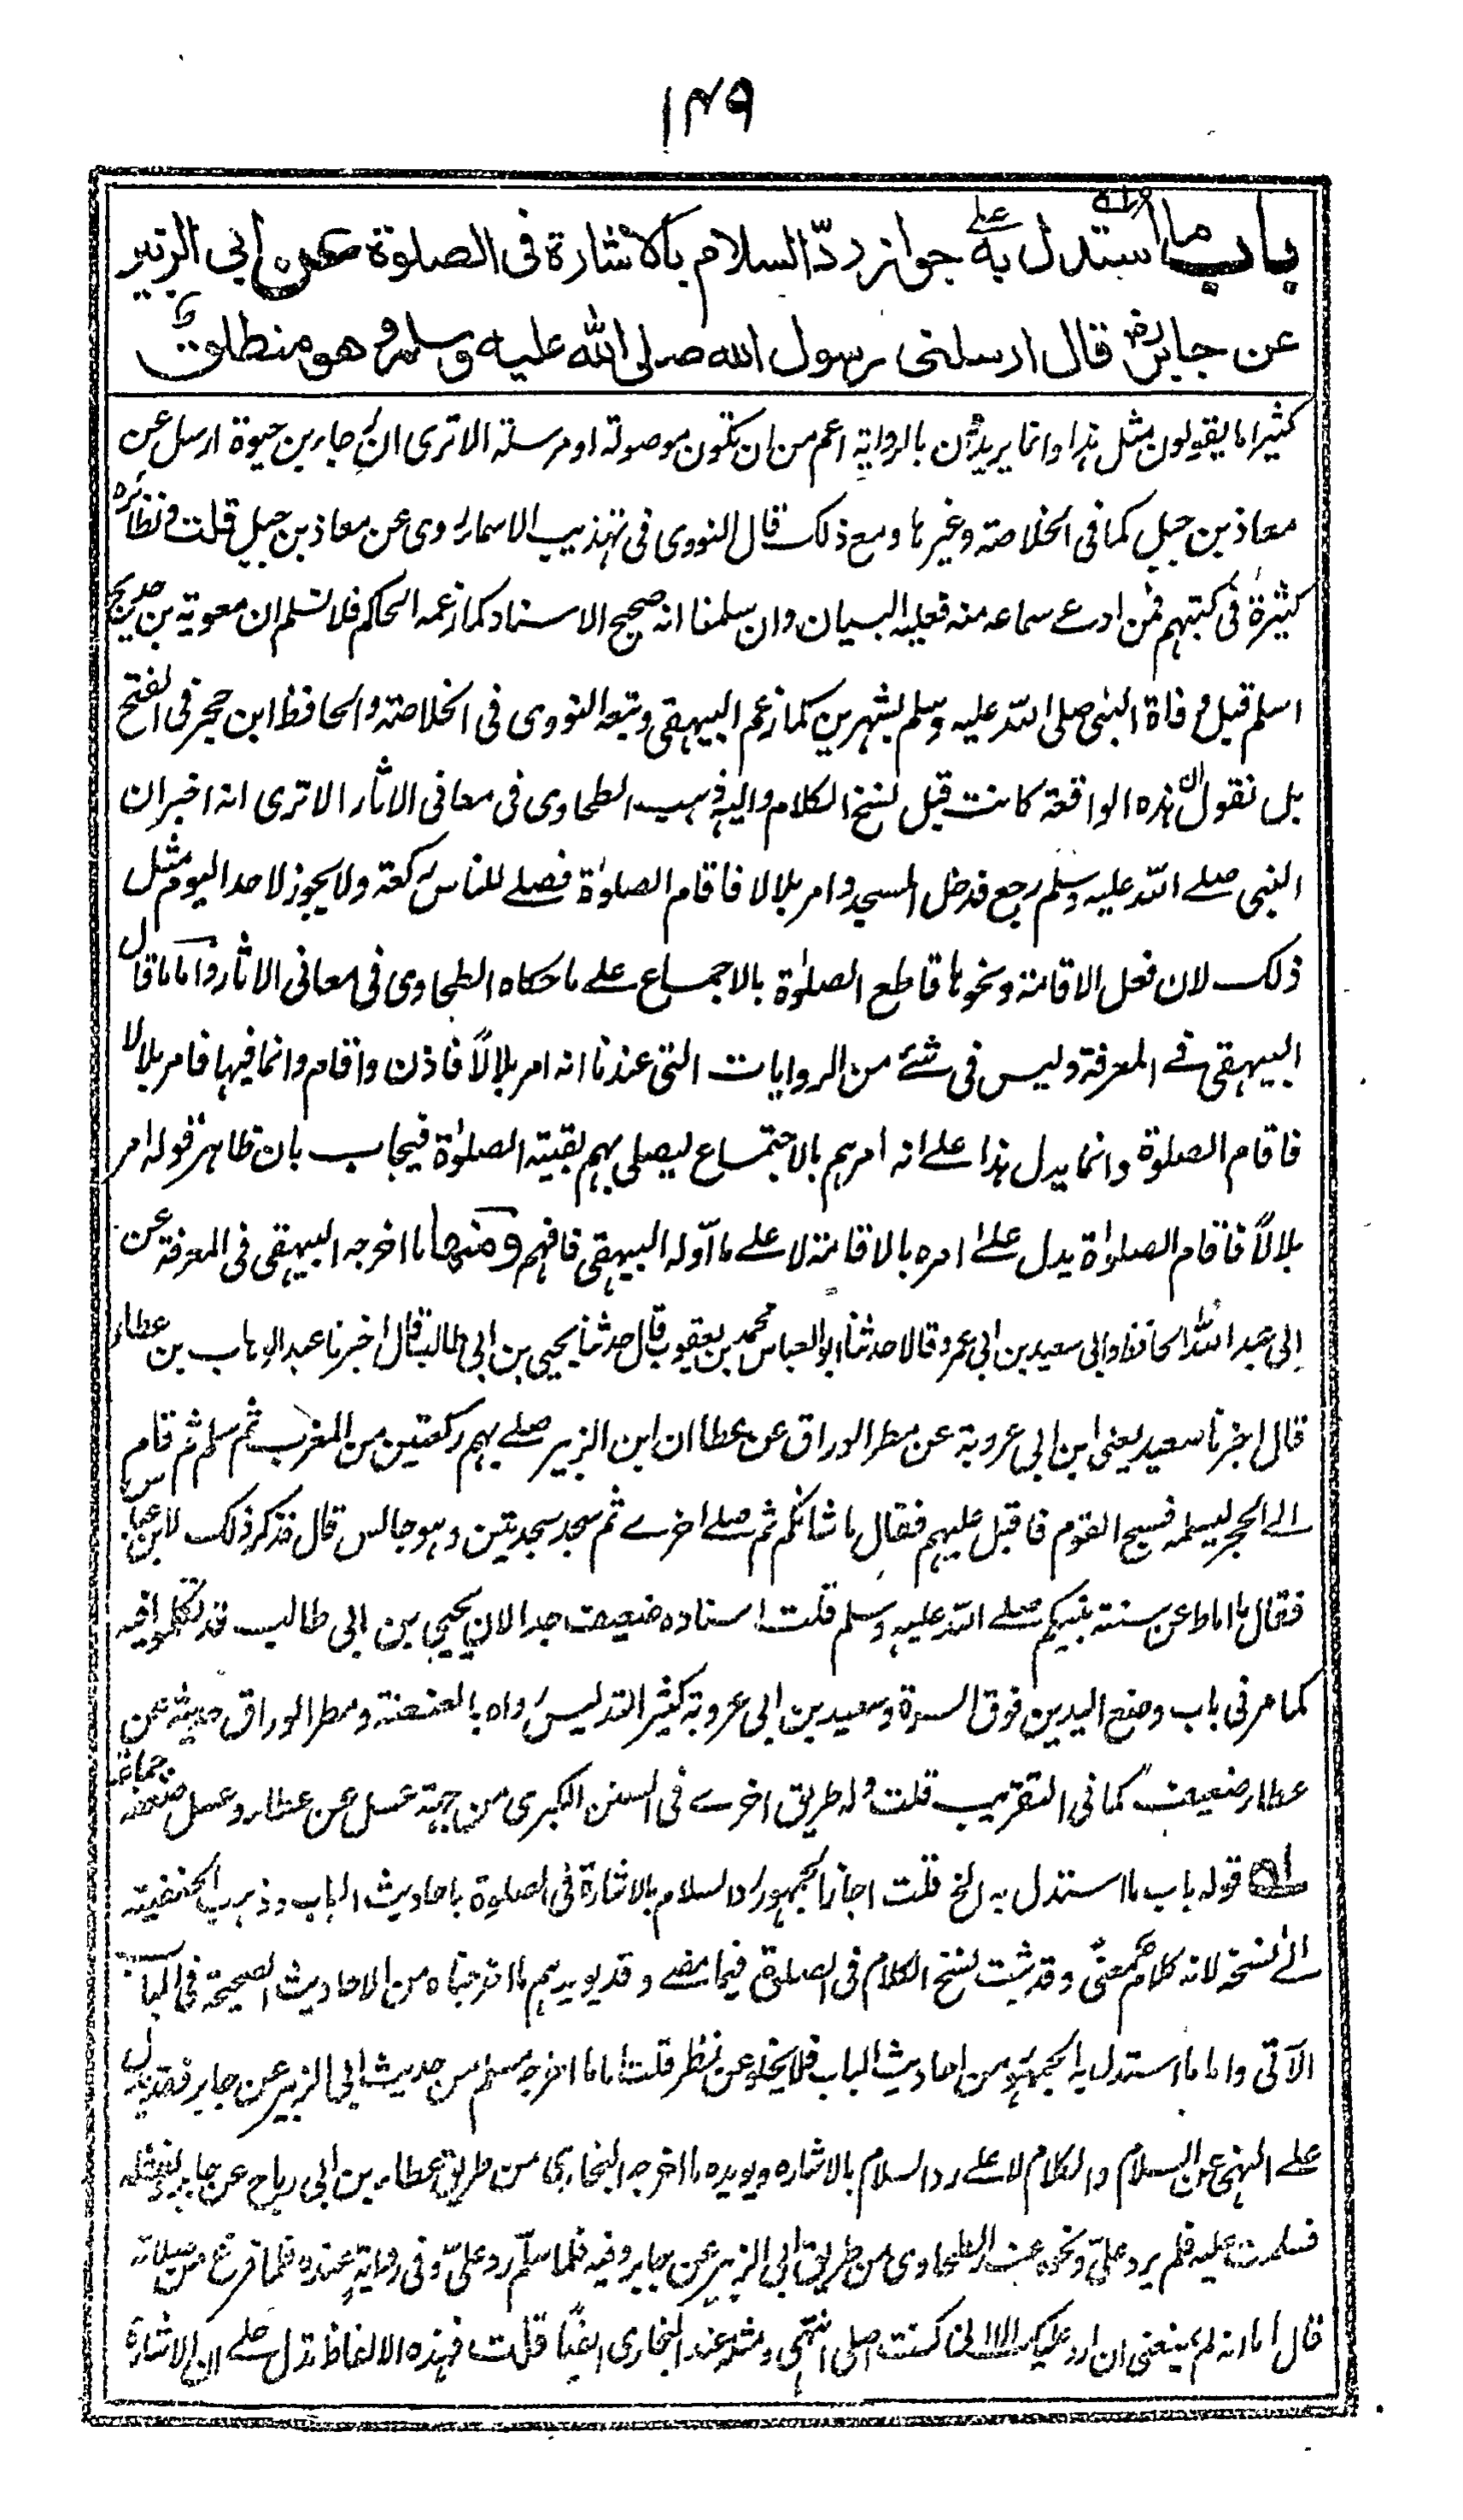 ١٤٩
باب ما استدل به على جواز رد السلام بالاشارة فى الصلوة عن ابى الزبير
عن جابر رض قال ارسلنى رسول الله صلى الله عليه وسلم وهو منطلق
كثيرا ما يقولون مثل هذا وانما يريدون بالرواية اعم من ان تكون موصولة او مرسلة الا ترى ان رجاء بن حيوة ارسل عن
معاذ بن جبل كما فى الخلاصة وغيرها ومع ذلك قال النووى فى تهذيب الاسماء روى عن معاذ بن جبل قلت ونظائره
كثيرة فى كتبهم فمن ادعى سماعه منه فعليه البيان وان سلمنا انه صحيح الاسناد كما زعمه الحاكم فلا نسلم ان معوية بن حديج
اسلم قبل وفاة النبى صلى الله عليه وسلم بشهرين كما زعم البيهقى وتبعه النووى فى الخلاصة والحافظ ابن حجر فى الفتح
بل نقول ان هذه الواقعة كانت قبل نسخ الكلام واليه ذهب الطحاوى فى معانى الاثار الا ترى انه اخبر ان
النبى صلے الله عليه وسلم رجع فدخل المسجد وامر بلالا فاقام الصلوٰة فصلے للناس ركعة ولا يجوز لاحد اليوم مثل
ذلك لان فعل الاقامة ونحوها قاطع الصلوٰة بالاجماع علے ما حكاه الطحاوى فى معانى الاثار واما ما قال
البيهقى فے المعرفة وليس فى شئ من الروايات التى عندنا انه امر بلالاً فاذن واقام وانما فيها فامر بلالا
فاقام الصلوة وانما يدل هذا علے انه امرهم بالاجتماع ليصلى بهم بقية الصلوٰة فيجاب بان ظاهر قوله امر
بلالاً فاقام الصلوٰة يدل علےٰ امره بالاقامة لا علے ما آوله البيهقى فافهم ومنها ما اخرجه البيهقى فى المعرفة عن
ابى عبد الله الحافظ وابى سعيد بن ابى عمرو قالا حدثنا ابو العباس محمد بن يعقوب قال حدثنا يحيى بن ابى طالب قال اخبرنا عبد الوهاب بن عطاء
قال اخبرنا سعيد يعنى ابن ابى عروبة عن مطر الوراق عن عطا ان ابن الزبير صلے بهم ركعتين من المغرب ثم سلم ثم قام
الے الحجر ليستلمه فسبح القوم فاقبل عليهم فقال ما شانكم ثم صلے اخرے ثم سجد سجدتين وهو جالس قال فذكر ذلك لابن عباس
فقال ما اماط عن سنة نبيكم صلے الله عليه وسلم قلت اسناده ضعيف جدا لان يحيى بن ابى طالب قد تكلموا فيه
كما مر فى باب وضع اليدين فوق السرة وسعيد بن ابى عروبة كثير التدليس رواه بالعنعنة ومطر الوراق حديثه عن
عطاء ضعيف كما فى التقريب قلت وله طريق اخرے فى السنن الكبرى من جهة عسل عن عطاء وعسل ضعفه جماعة
قوله باب ما استدل به الخ قلت اجاز الجمهور رد السلام بالاشارة فى الصلوة باحاديث الباب وذهب الحنفية
الے نسخه لانه كلام معنىً وقد ثبت نسخ الكلام فى الصلوة فيما مضے وقد يويدهم ما اخرجناه من الاحاديث الصحيحة فى الباب
الآتى واما ما استدل به الجمهور من احاديث الباب فلا يخلو عن نظر قلت اما ما اخرجه مسلم من حديث ابى الزبير عن جابر فقد يدل
علے النهى عن السلام والكلام لا علے رد السلام بالاشاره ويويده ما اخرجه البخارى من طريق عطاء بن ابى رباح عن جابر
فسلمت عليه فلم يرد علىّ ونحوه عند الطحاوى من طريق ابى الزبير عن جابر وفيه فلما سلّم رد علىّ وفى رواية عنده فلما فرغ من صلاته
قال اما انه لم يمنعنى ان ارد عليك الا انى كنت اصلى انتهى ومثله عند البخارى ايضًا قلت فهذه الالفاظ تدل علے ان الاشارة